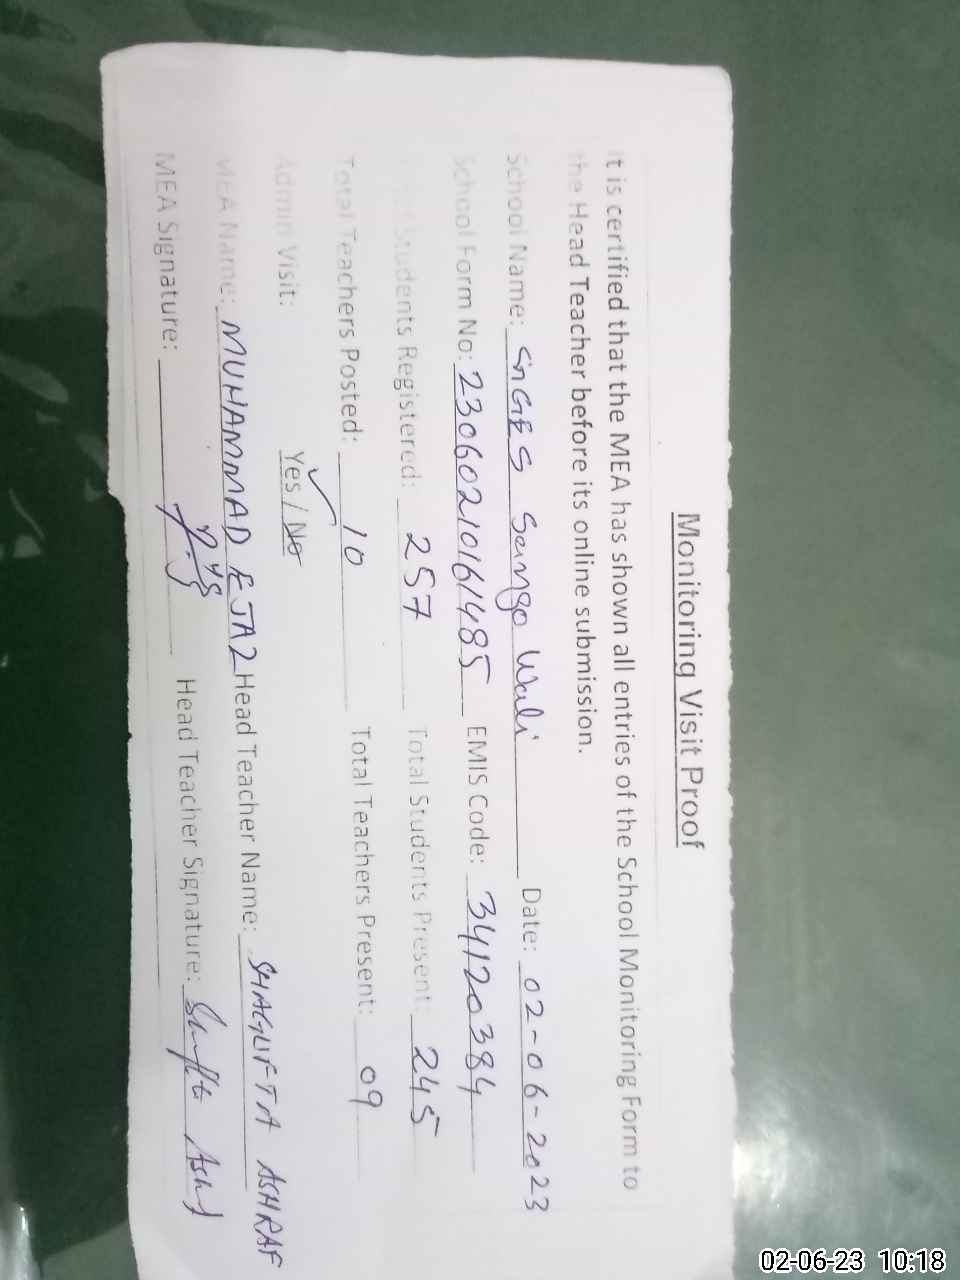 Monitoring Visit Proof
It is certified that the MEA has shown all entries of the School Monitoring Form to
the Head Teacher before its online submission.
School Name: GGES Saingo Wali Date: 02-06-2023
School Form No: 23060210161485 EMIS Code: 34120384
Students Registered: 257 Total Students Present: 245
Total Teachers Posted: 10 Total Teachers Present: 09
Admin Visit: Yes / No
MEA Name: MUHAMMAD EJAZ Head Teacher Name: SHAGUFTA ASHRAF
MEA Signature: Head Teacher Signature:
02-06-23 10:18